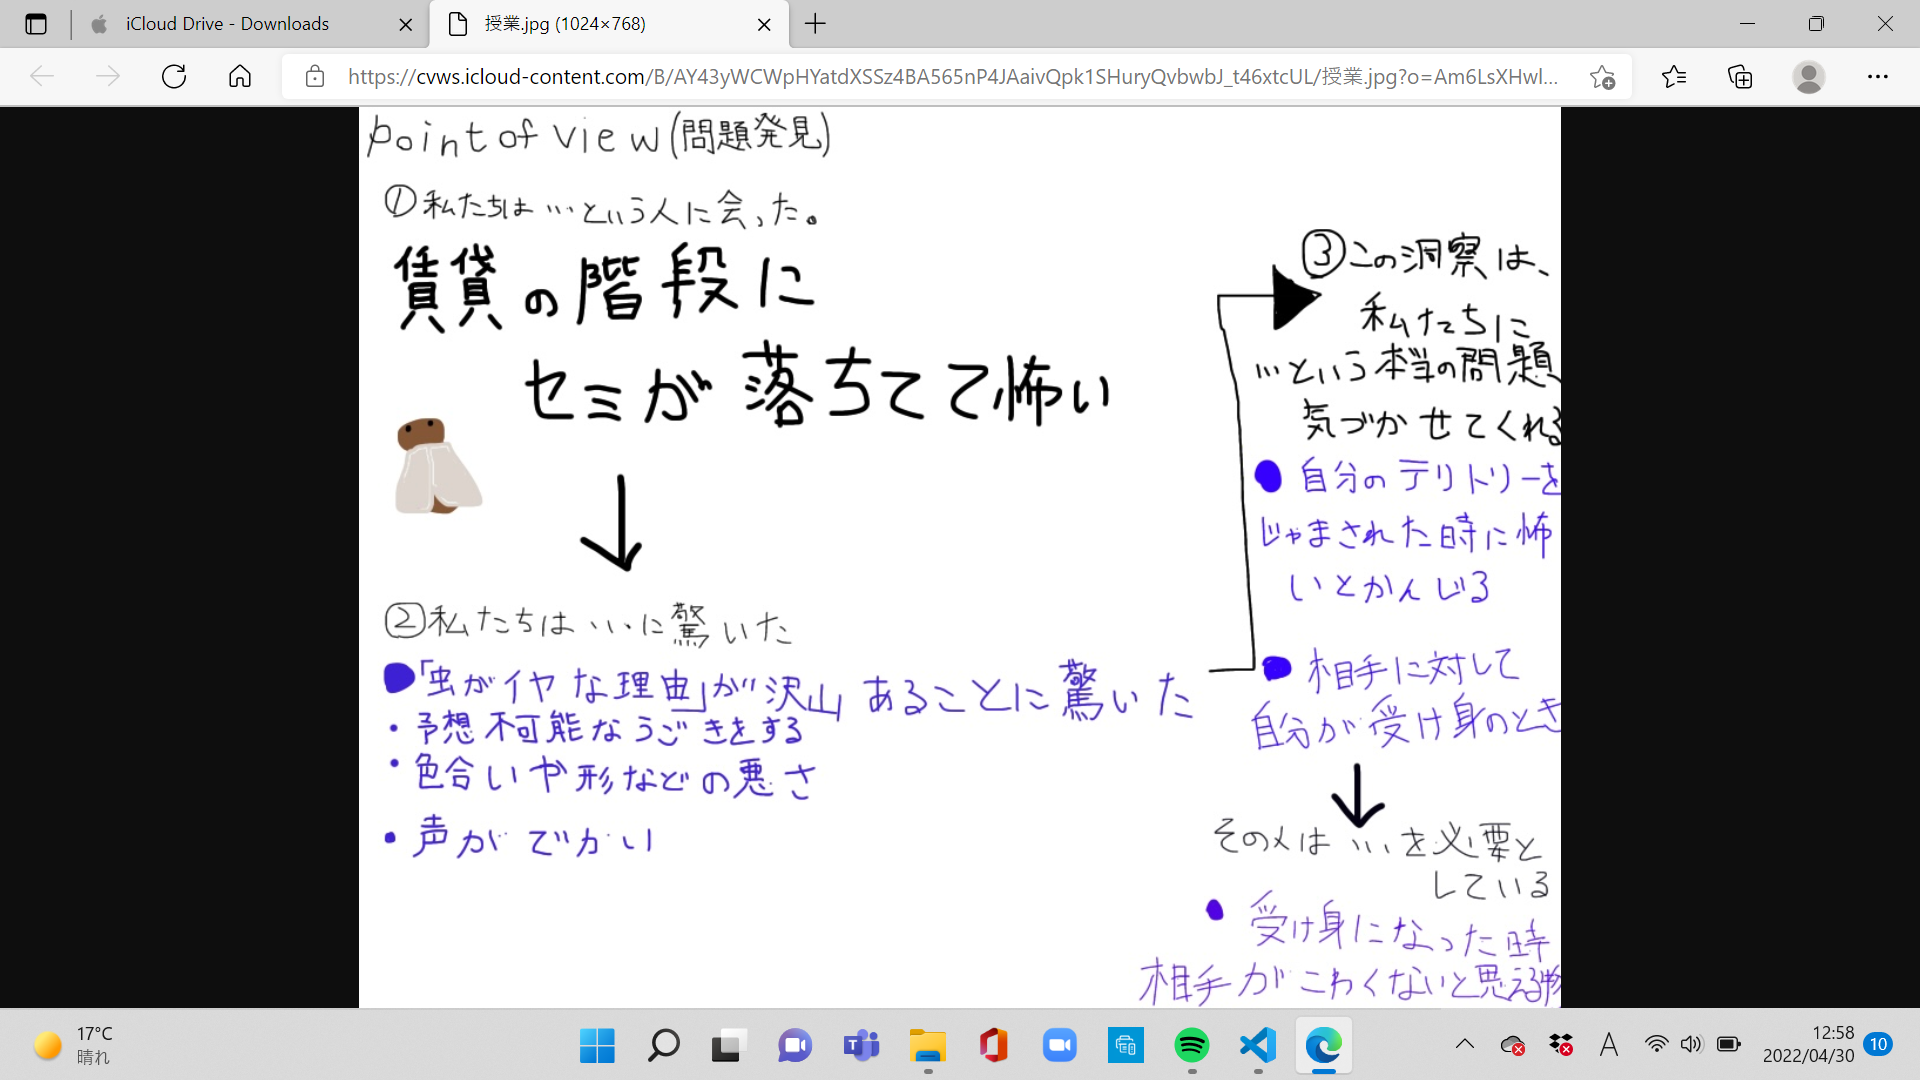 iCloud Drive - Downloads
授業.jpg (1024×768)
https://cvws.icloud-content.com/B/AY43yWCWpHYatdXSSz4BA565nP4JAaivQpk1SHuryQvbwbJ_t46xtcUL/授業.jpg?o=Am6LsXHwl...
point of view (問題発見)
①私たちは…という人に会った。
賃貸の階段に
セミが落ちてて怖い
②私たちは…に驚いた
「虫がイヤな理由」が沢山あることに驚いた
・予想不可能なうごきをする
・色合いや形などの悪さ
・声がでかい
③この洞察は、
私たちに
…という本当の問題
気づかせてくれる
●自分のテリトリーを
じゃまされた時に怖
いとかんじる
●相手に対して
自分が受け身のとき
その人は…を必要と
している
●受け身になった時
相手がこわくないと思える物
17°C
晴れ
A
12:58
2022/04/30
10